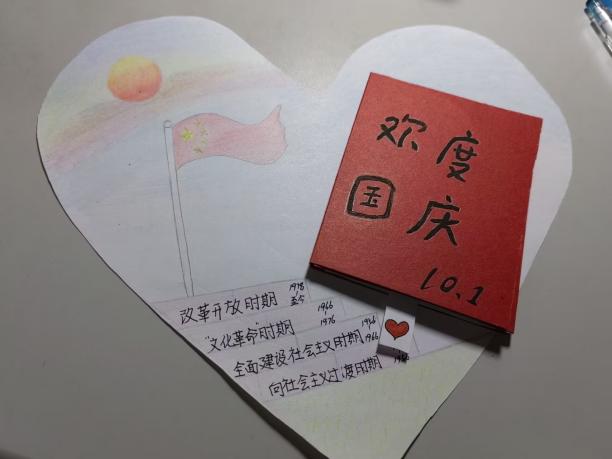 欢度
国庆
10.1
改革开放时期 1978 至今
"文化革命"时期 1966 1976
全面建设社会主义时期 1956 1966
向社会主义过渡时期